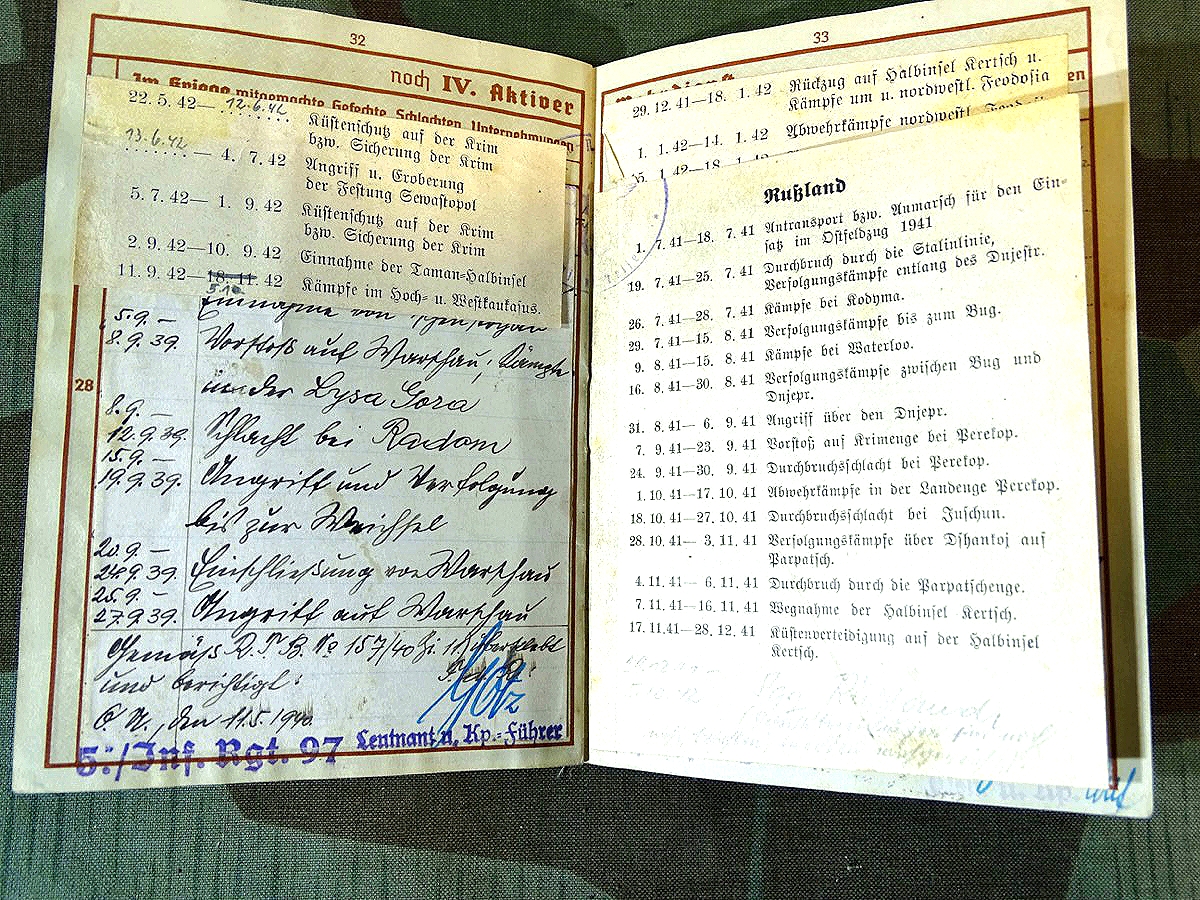 32
noch IV. Aktiver
Im Kriege mitgemachte Gefechte, Schlachten, Unternehmungen
22. 5. 42— 12.6.42 Küstenschutz auf der Krim
bzw. Sicherung der Krim
13.6.42 — 4. 7. 42 Angriff u. Eroberung
der Festung Sewastopol
5. 7. 42— 1. 9. 42 Küstenschutz auf der Krim
bzw. Sicherung der Krim
2. 9. 42—10. 9. 42 Einnahme der Taman-Halbinsel
11. 9. 42—18. 11. 42 Kämpfe im Hoch- u. Westkaukasus.
5.10.
Einnahme von
5.9. —
8.9.39. Vorstoß auf Warschau, Kämpfe
28
in der Lysa Gora
8.9. —
12.9.39. Schlacht bei Radom
15.9. —
19.9.39. Angriff und Verfolgung
bis zur Weichsel
20.9. —
24.9.39. Einschließung von Warschau
25.9. —
27.9.39. Angriff auf Warschau
Gemäß D. F. B. No 157/40 Zi. 11 überklebt
und berichtigt:
O. U., den 11.5.1940
5./Inf. Rgt. 97 Leutnant u. Kp.-Führer
33
29. 12. 41—18. 1. 42 Rückzug auf Halbinsel Kertsch u.
Kämpfe um u. nordwestl. Feodosia
1. 1. 42—14. 1. 42 Abwehrkämpfe nordwestl. Feodosia
15. 1. 42—18. 1. 42
Rußland
1. 7. 41—18. 7. 41 Antransport bzw. Anmarsch für den Ein-
satz im Ostfeldzug 1941
19. 7. 41—25. 7. 41 Durchbruch durch die Stalinlinie,
Verfolgungskämpfe entlang des Dnjestr.
26. 7. 41—28. 7. 41 Kämpfe bei Kodyma.
29. 7. 41—15. 8. 41 Verfolgungskämpfe bis zum Bug.
9. 8. 41—15. 8. 41 Kämpfe bei Waterloo.
16. 8. 41—30. 8. 41 Verfolgungskämpfe zwischen Bug und
Dnjepr.
31. 8. 41— 6. 9. 41 Angriff über den Dnjepr.
7. 9. 41—23. 9. 41 Vorstoß auf Krimenge bei Perekop.
24. 9. 41—30. 9. 41 Durchbruchsschlacht bei Perekop.
1. 10. 41—17. 10. 41 Abwehrkämpfe in der Landenge Perekop.
18. 10. 41—27. 10. 41 Durchbruchsschlacht bei Juschun.
28. 10. 41— 3. 11. 41 Verfolgungskämpfe über Dshankoj auf
Parpatsch.
4. 11. 41— 6. 11. 41 Durchbruch durch die Parpatschenge.
7. 11. 41—16. 11. 41 Wegnahme der Halbinsel Kertsch.
17. 11. 41—28. 12. 41 Küstenverteidigung auf der Halbinsel
Kertsch.